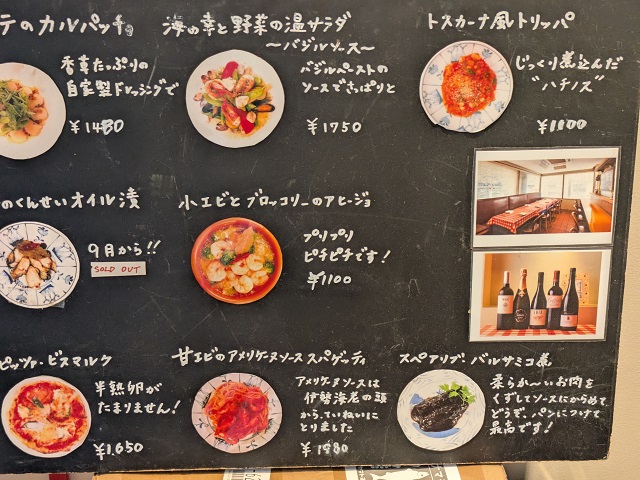 テのカルパッチョ
香草たっぷりの
自家製ドレッシングで
¥1480
海の幸と野菜の温サラダ
～バジルソース～
バジルペーストの
ソースでさっぱりと
¥1750
トスカーナ風トリッパ
じっくり煮込んだ
"ハチノス"
¥1100
のくんせいオイル漬
9月から!!
SOLD OUT
小エビとブロッコリーのアヒージョ
プリプリ
ピチピチです!
¥1100
ピッツァ・ビスマルク
半熟卵が
たまりません!
¥1,650
甘エビのアメリケーヌソース スパゲッティ
アメリケーヌソースは
伊勢海老の頭
から、ていねいに
とりました
¥1980
スペアリブ・バルサミコ煮
柔らか〜いお肉を
くずしてソースにからめて
どうぞ、パンにつけて
最高です!